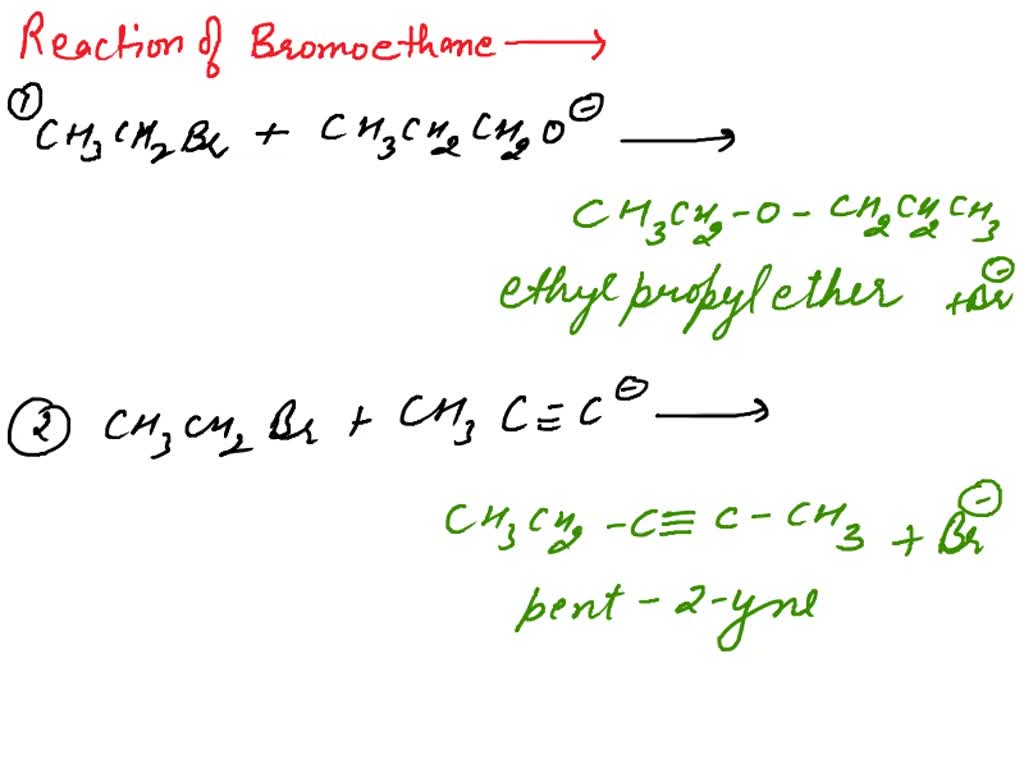 Reaction of Bromoethane →
① CH₃CH₂Br + CH₃CH₂CH₂O⊖ →
CH₃CH₂-O-CH₂CH₂CH₃
ethyl propyl ether +Br⊖
② CH₃CH₂Br + CH₃C≡C⊖ →
CH₃CH₂-C≡C-CH₃ + Br⊖
pent-2-yne